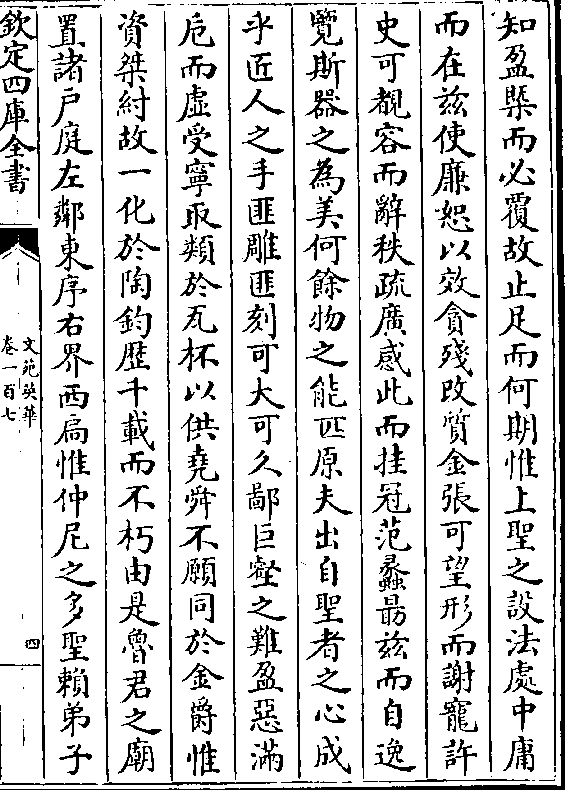 知盈槩而必覆故止足而何期惟上聖之設法處中庸
而在兹使廉恕以效貪殘改質金張可望形而謝寵許
史可覩容而辭秩疏廣感此而挂冠范蠡勗兹而自逸
覽斯器之為美何餘物之能匹原夫出自聖者之心成
乎匠人之手匪雕匪刻可大可久鄙巨壑之難盈惡滿
巵而虛受寧取類於瓦杯以供堯舜不願同於金爵惟
資桀紂故一化於陶鈞歴千載而不朽由是魯君之廟
置諸户庭左鄰東序右界西扃惟仲尼之多聖賴弟子
欽定四庫全書
文苑英華
卷一百七
四